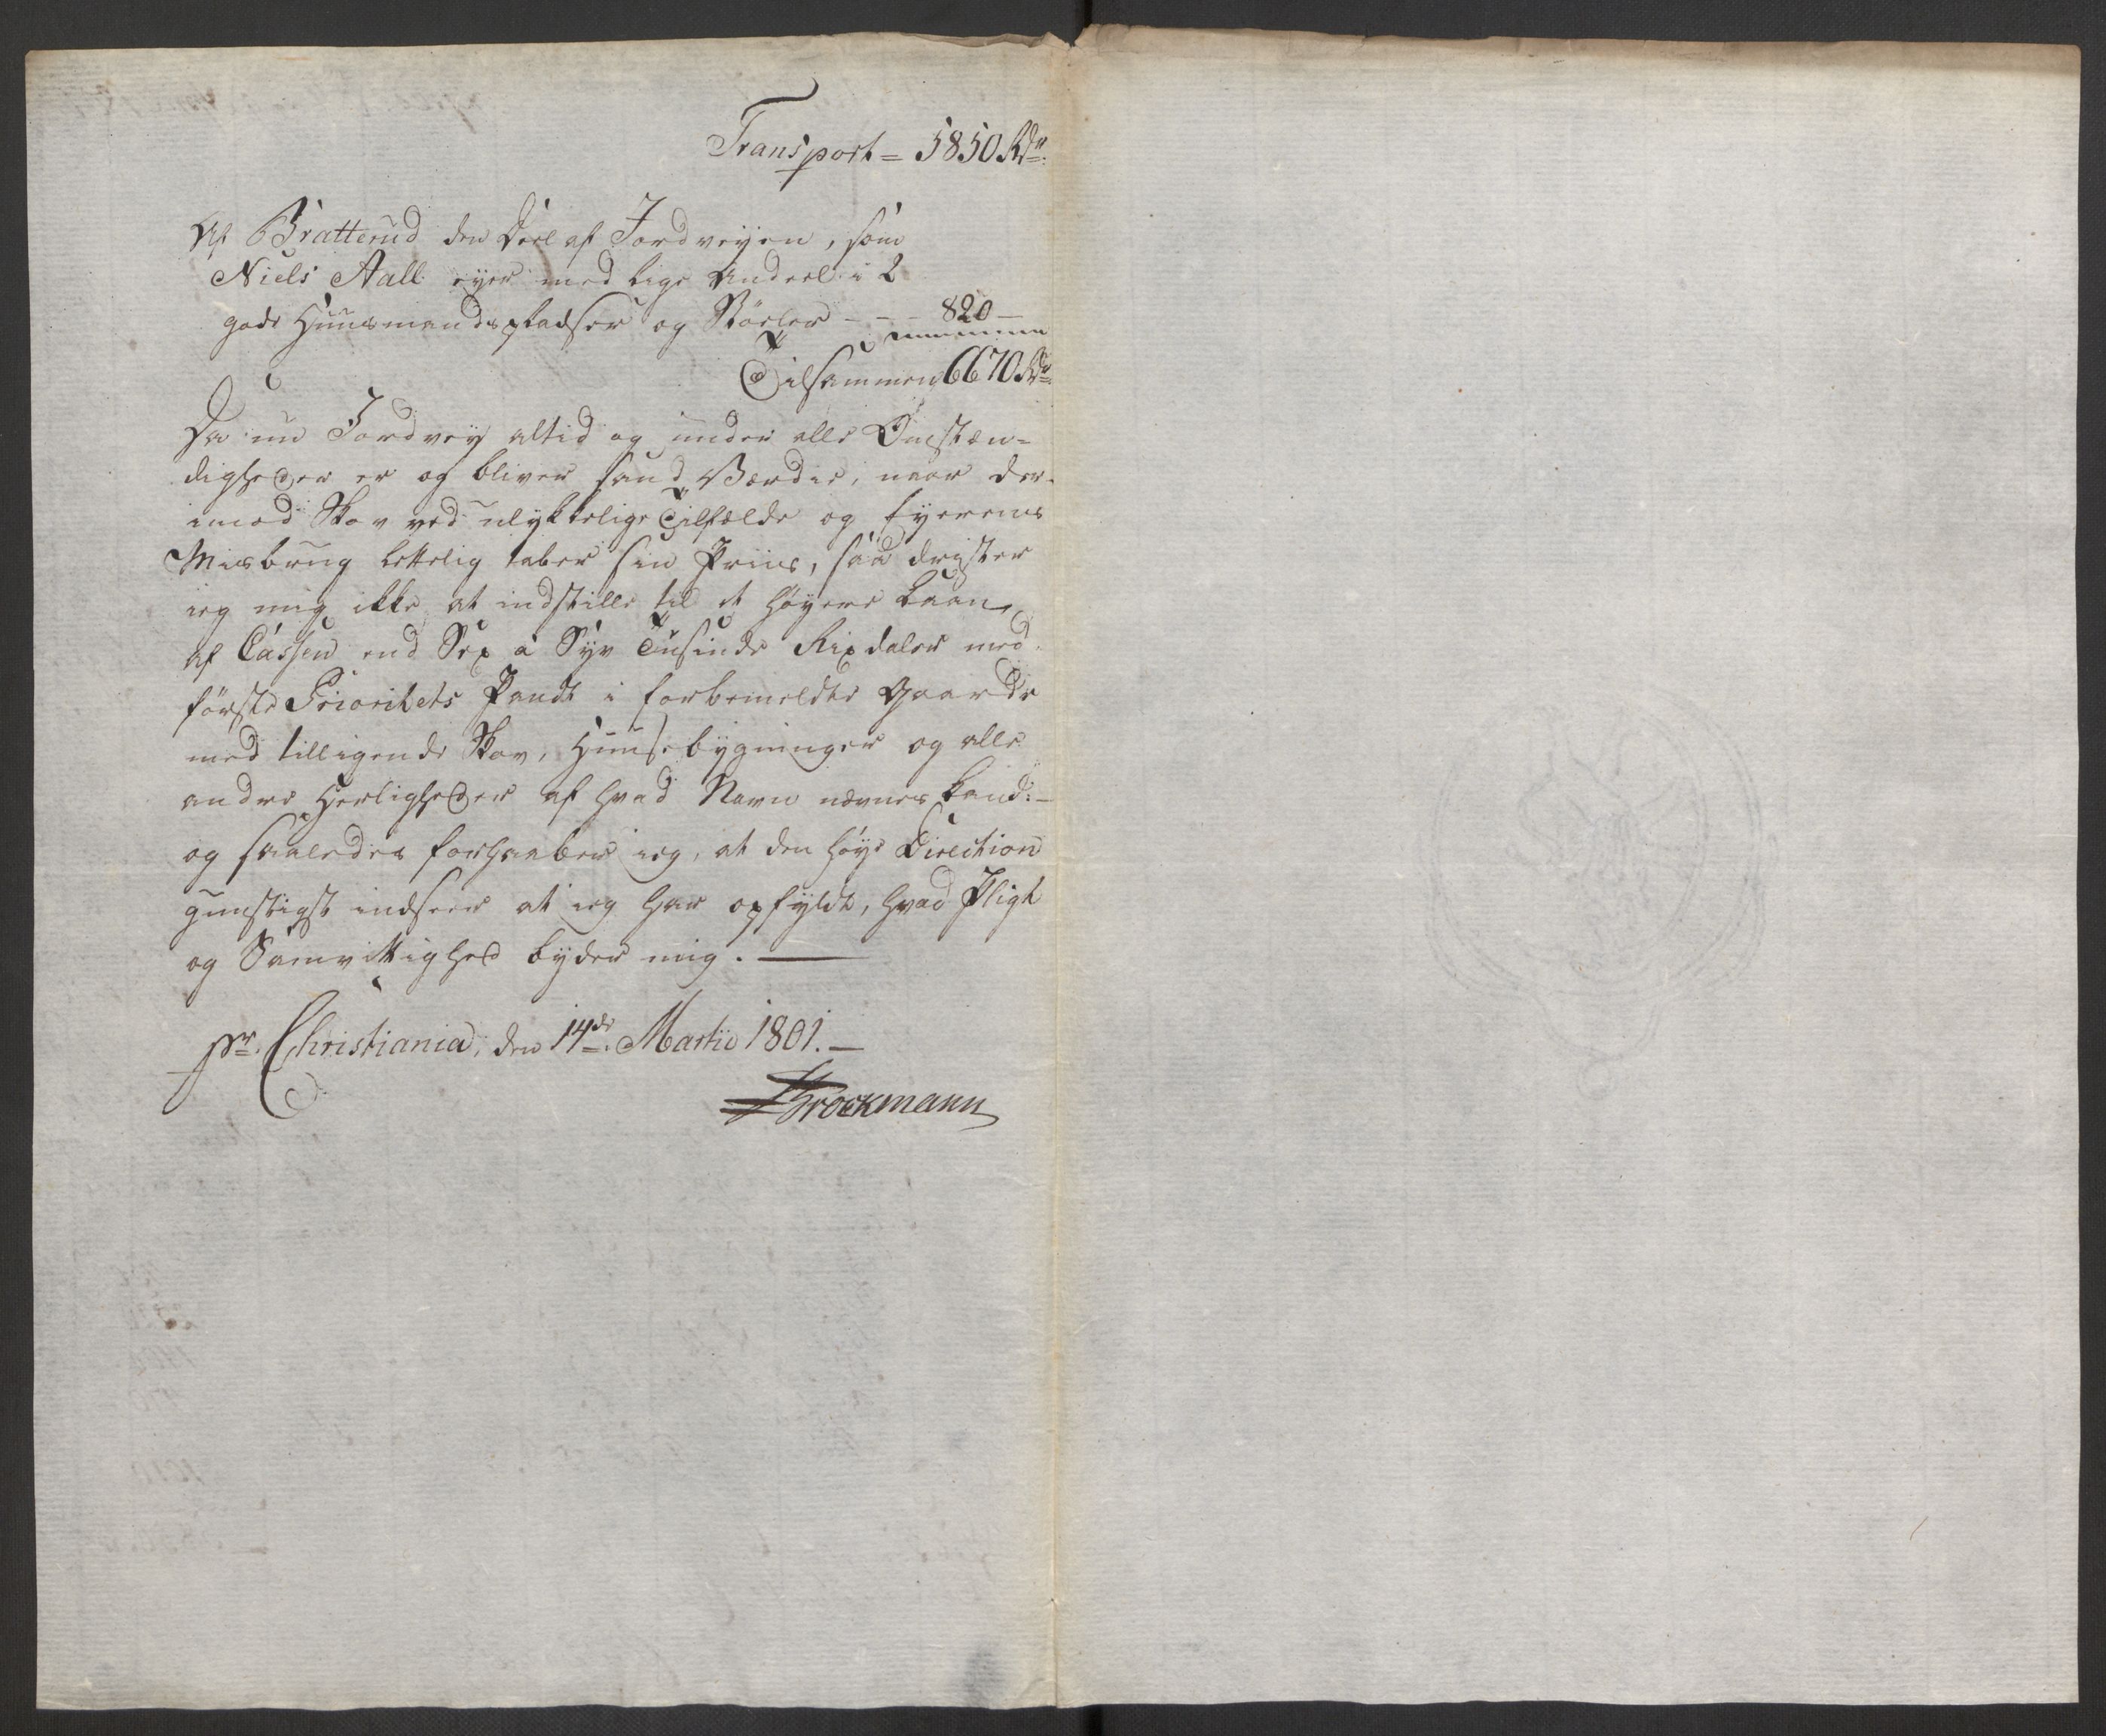 Transport = 5850 Rdr.
Af Bratterud den Deel af Jordveyen, som
Niels Aall eyer med lige Andeel i 2
gode Huusmandspladser og Støeler - - - 820 -
Tilsammen 6670 Rdr.
Da nu Jordvey altid og under alle Omstæn-
digheder er og bliver sand Værdie, naar der-
imod Skov ved ulykkelige Tilfælde og Eyerens
Misbrug lettelig taber sin Priis, saa drister
ieg mig ikke at indstille til et høyere Laan
af Cassen end Sex a Syv Tusinde Rixdaler med
første Prioritets Pandt i forbemeldte Gaarde
med tilligende Skov, Huusebygninger og alle
andre Herligheder af hvad Navn nævnes kand: -
og saaledes forhaaber ieg, at den høye Direction
gunstigst indseer at ieg har opfyldt, hvad Pligt
og Samvittighed byder mig. -
pr. Christiania, den 14de Martii 1801. -
Brockmann